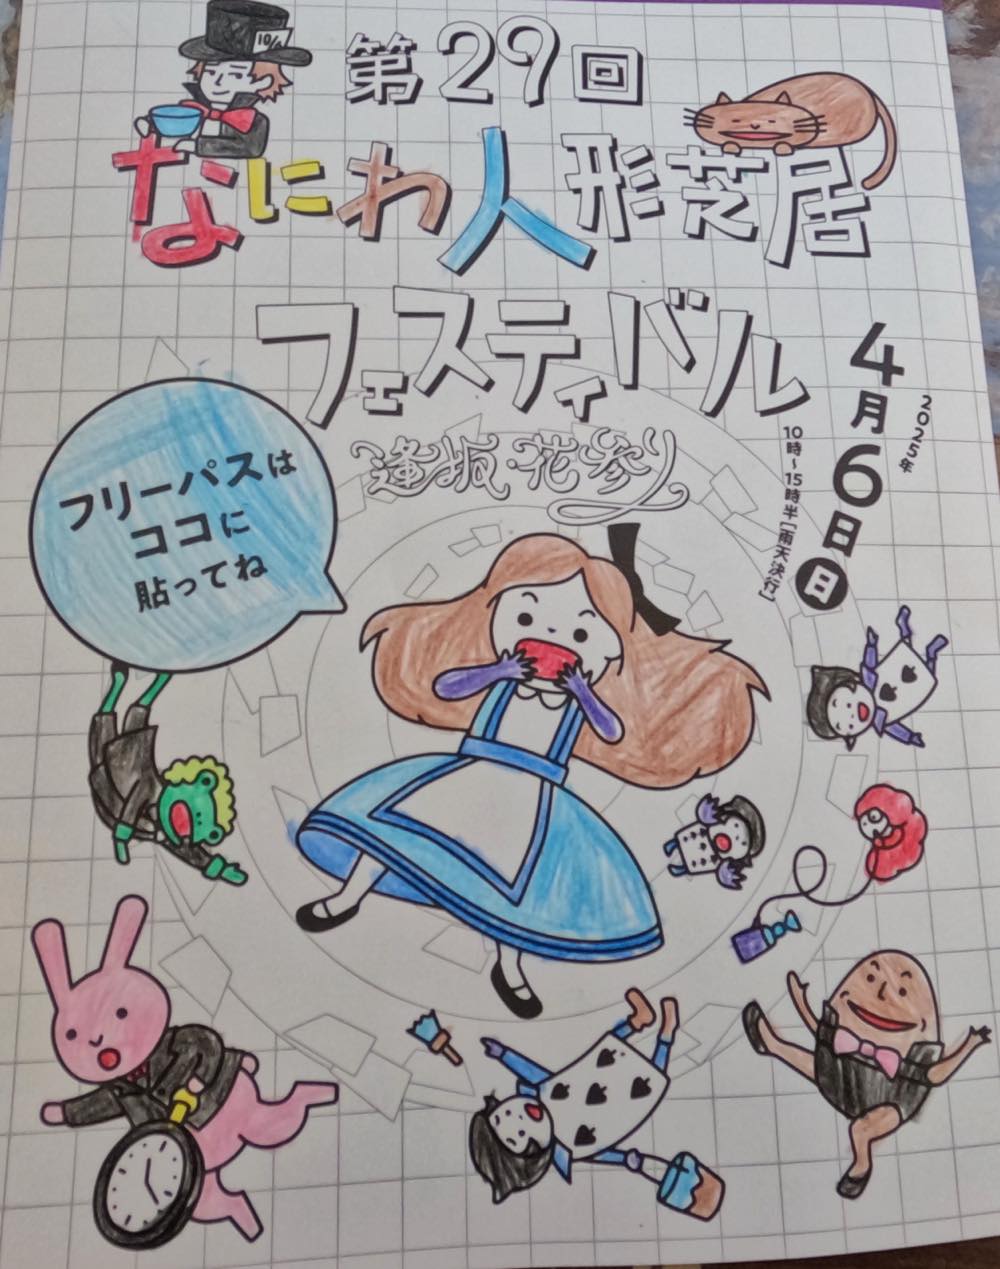 10/6
第29回
なにわ人形芝居
フェスティバル
逢坂・花参り
2025年
4月6日日
10時～15時半［雨天決行］
フリーパスは
ココに
貼ってね